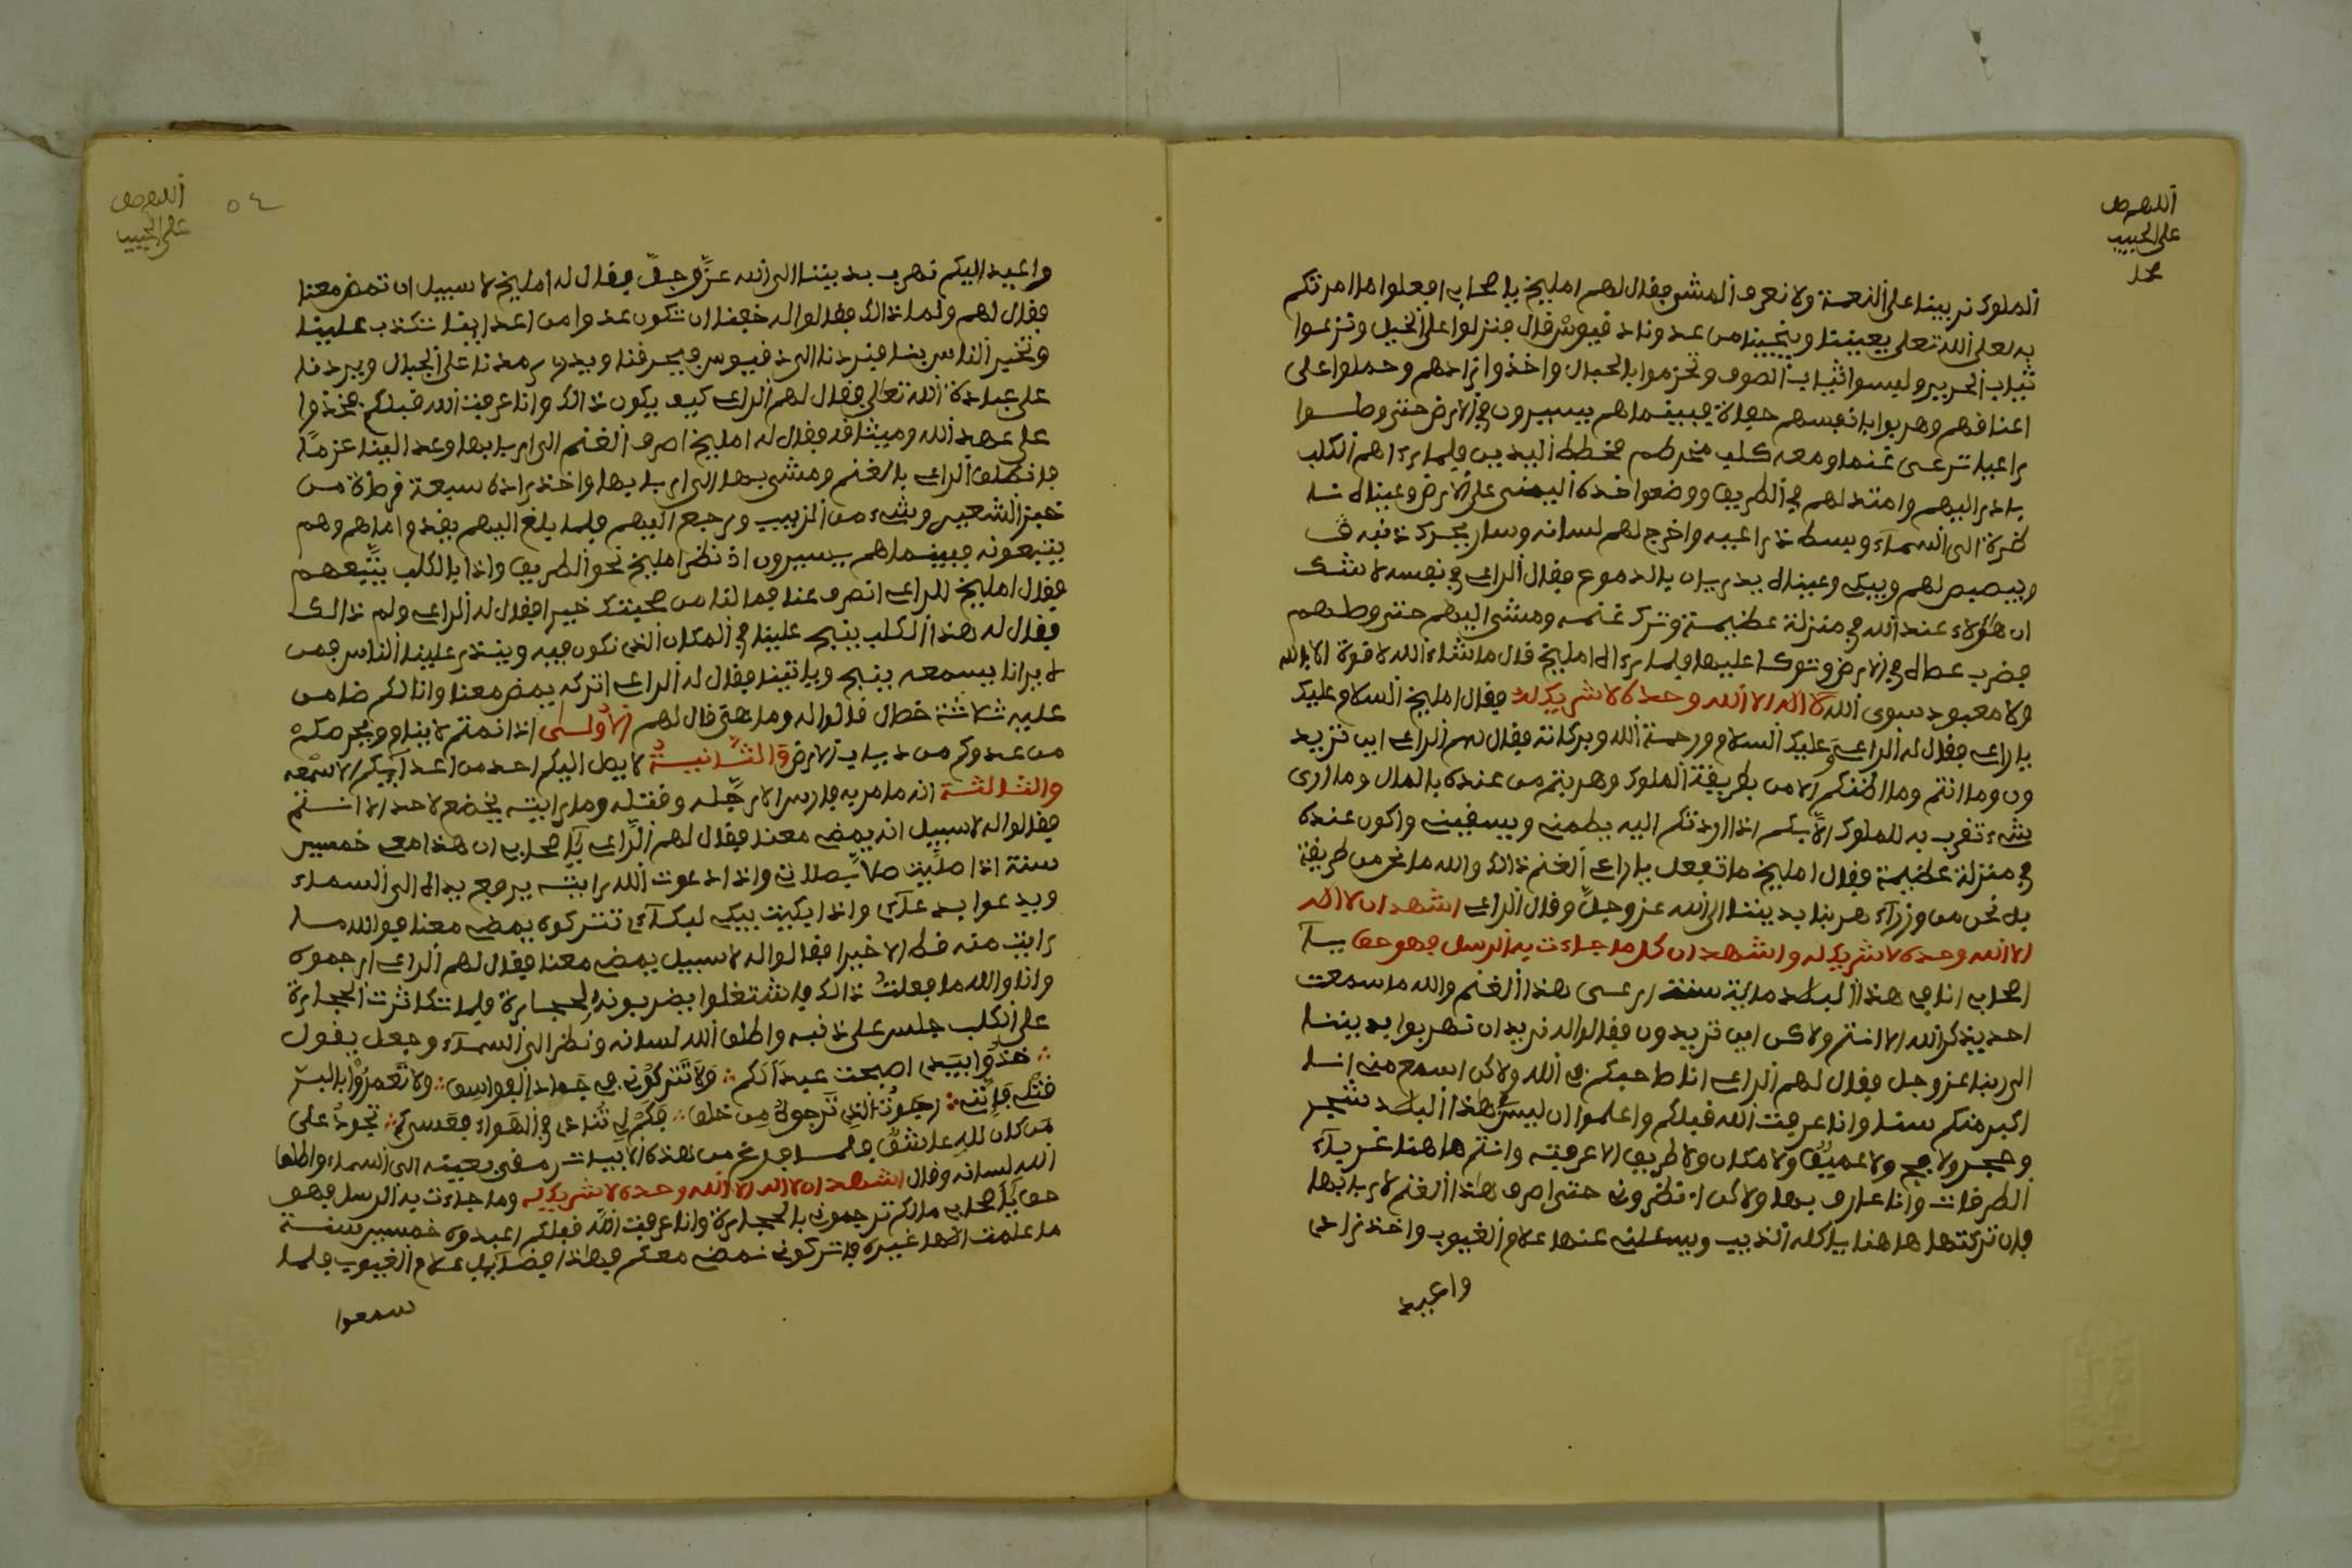 اللهم صل
على الحبيب
محمد
الملوك تربينا على النعمة ولا نعرف المشي فقال لهم امليخ يا صحابي افعلوا ما امرتكم
به لعل الله تعلى يعيننا وينجينا من عدونا دقيوس قال فنزلوا على الخيل ونزعوا
ثياب الحرير ولبسوا ثياب الصوف وتحزموا بالحبال واخذوا زادهم وحملوا على
اعناقهم وهربوا بانفسهم حفاة فبينما هم يسيرون في الارض حتى وصلوا
راعيا ترعى غنما ومعه كلب مخطط اليدين فلما رءاهم الكلب
بادر اليهم وامتد لهم في الطريق ووضع خده اليمنى على الارض وعيناه نا
ظرة الى السماء وبسط ذراعيه واخرج لهم لسانه وسار يحرك ذنبه ق
ويبصبص لهم ويبكي وعيناه يدريان بالدموع فقال الراعي في نفسه لا شك
ان هؤلاء عند الله في منزلة عظيمة وترك غنمه ومشى اليهم حتى وصلهم
فضرب عصاه في الارض وتوكا عليها فلما رءاه امليخ قال ما شاء الله لا قوة الا بالله
ولا معبود سوى الله لا اله الا الله وحده لا شريك له فقال امليخ السلام عليك
يا راعي فقال له الراعي وعليك السلام ورحمة الله وبركاته فقال لهم الراعي اين تريد
ون وما انتم وما اظنكم الا من بطريقة الملوك وهربتم من عنده بالمال وما ارى
شيء تقرب به للملوك الا بكم اذا رددتكم اليه يطمني ويسقيني واكون عنده
في منزلة عظيمة فقال امليخ ما تفعل يا راعي الغنم ذالك والله ما نحن من طريقة
بل نحن من وزراء هربنا بديننا الى الله عز وجل وقال الراعي اشهد ان لا اله
الا الله وحده لا شريك له واشهد ان كل ما جاءت به الرسل فهو حق يا
اصحابي انا في هذا البلد ماية سنة ارعى هذا الغنم والله ما سمعت
احد يذكر الله الا انتم ولاكن اين تريدون فقالوا له نريد ان نهربوا بديننا
الى ربنا عز وجل فقال لهم الراعي انا صاحبكم في الله ولاكن اسمع مني انا
اكبر منكم سنا وانا عرفت الله قبلكم واعلموا ان ليس هذا البلد شجر
وحجر ولا فج ولا عميق ولا مكان ولا طريق الا عرفته وانتم ها هنا غرباء
الطرقات وانا عارف بها ولاكن انظروني حتى اصرف هذا الغنم لاربابها
فان تركتها ها هنا ياكله الذيب ويسئلني عنها علام الغيوب واخذ زادي
واعيد
اللهم صل
على الحبيب
٥٤
واعيد اليكم نهرب بديننا الى الله عز وجل فقال له امليخ لا سبيل ان تمض معنا
فقال لهم ولما ذالك فقالوا له خفنا ان تكون عدوا من اعداينا تكذب علينا
وتخبر الناس بنا فيردنا الى دقيوس فيحرقنا ويدر رمدنا على الجبال ويردنا
على عبادة الله تعالى فقال لهم الراعي كيف يكون ذالك وانا عرفت الله قبلكم فخذوا
على عهد الله وميثاقه فقال له امليخ اصرف الغنم الى اربابها وعد الينا عزما
فانطلق الراعي بالغنم ومشى بها الى اربابها واخذ زاده سبعة قرطة من
خبز الشعير وشيء من الزبيب ورجع اليهم فلما بلغ اليهم بقدوا ما هم وهم
يتبعونه فبينما هم يسيرون اذ نظر امليخ نحو الطريق واذا بالكلب يتبعهم
فقال امليخ للراعي انصرف عنا فما لنا من صحبتك خيرا فقال له الراعي ولم ذالك
فقال له هذا الكلب ينبح علينا في المكان الذي نكون فيه وينذر علينا الناس فمن
لا يرانا يسمعه ينبح وياتينا فقال له الراعي اتركه يمض معنا وانا لكم ضامن
عليه ثلاثة خصال قالوا له وما هي قال لهم الاولى اذا نمتم لا ينام ويحرسكم
من عدوكم من دبيب الارض والثانية لا يصل اليكم احد من اعدايكم الا شعه
والثالثة انه ما مر به فارس الا رجله وقتله وما رايته يخضع لاحد الا انتم
فقالوا له لا سبيل انه يمض معنا فقال لهم الراعي يا صحابي ان هذا معي خمسين
سنة اذا صليت صلا بصلاتي واذا دعوت الله رايته يرفع يداه الى السماء
ويدعوا بدعاءي واذا بكيت يبكي لبكاءي تتركوه يمض معنا فوالله ما
رايت منه قط الا خيرا فقالوا له لا سبيل يمض معنا فقال لهم الراعي ارجموه
وانا والله ما فعلت ذالك فاشتغلوا يضربونه بالحجارة فلما تكاثرت الحجارة
على الكلب جلس على ذنبه واطلق الله لسانه ونظر الى السماء وجعل يقول
خذوا بيدي اصبحت عبدا لكم ولا تتركوني في جهاد الفواسق ولا تغمروا باليس
قتلي فإنني رجوت الذي ترجوه من خلق فكم لي تنادي في الهواء فعسى تجود على
من كان لله عاشق فلما فرغ من هذه الابيات رمقى بعينه الى السماء واطلق
الله لسانه وقال اشهد ان لا اله الا الله وحده لا شريك له وما جاءت به الرسل فهو
حق يا صحابي ما لكم ترجموني بالحجارة وانا عرفت الله قبلكم اعبدوه خمسين سنة
ما علمت الها غيره فاتركوني نمض معكم فهذا قضاء علام الغيوب فلما
سمعوا